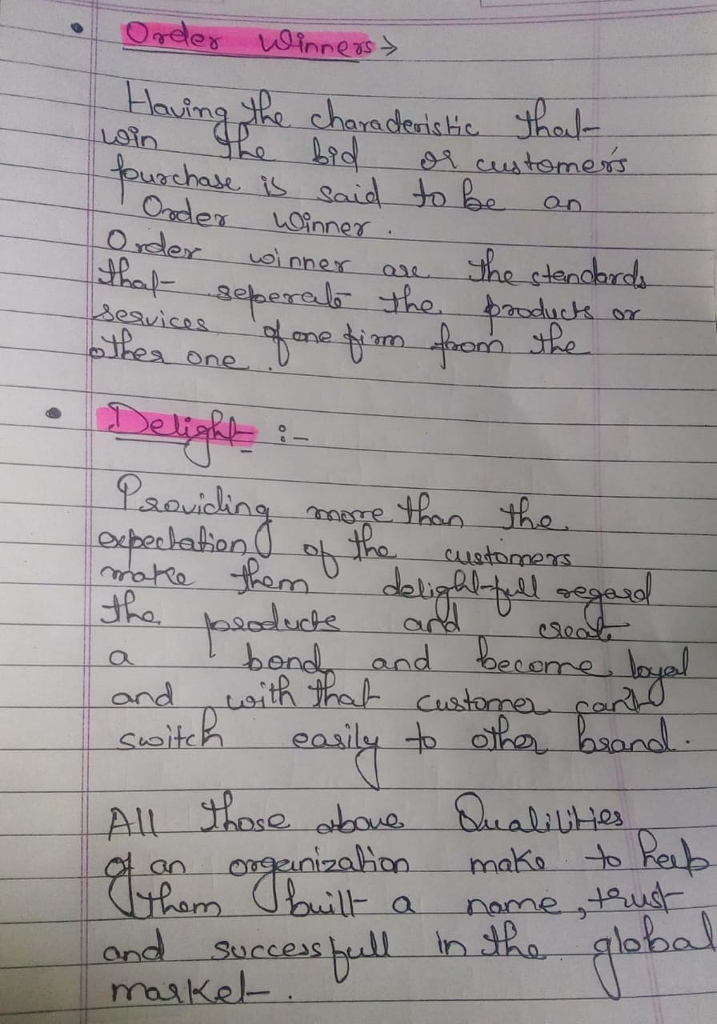 • Order Winners →
Having the characteristic that
win the bid or customer's
purchase is said to be an
Order Winner.
Order winner are the standards
that seperate the products or
services of one firm from the
other one.
• Delight :-
Providing more than the
expectation of the customers
make them delightfull regard
the products and create
a bond and become loyal
and with that customer can't
switch easily to other brand.
All those above Qualilities
of an organization make to help
them built a name, trust
and successfull in the global
market.